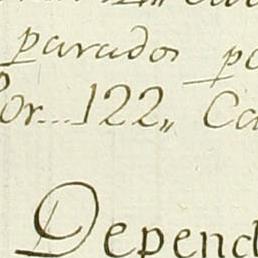 parados
Por...122,, Ca
Depend